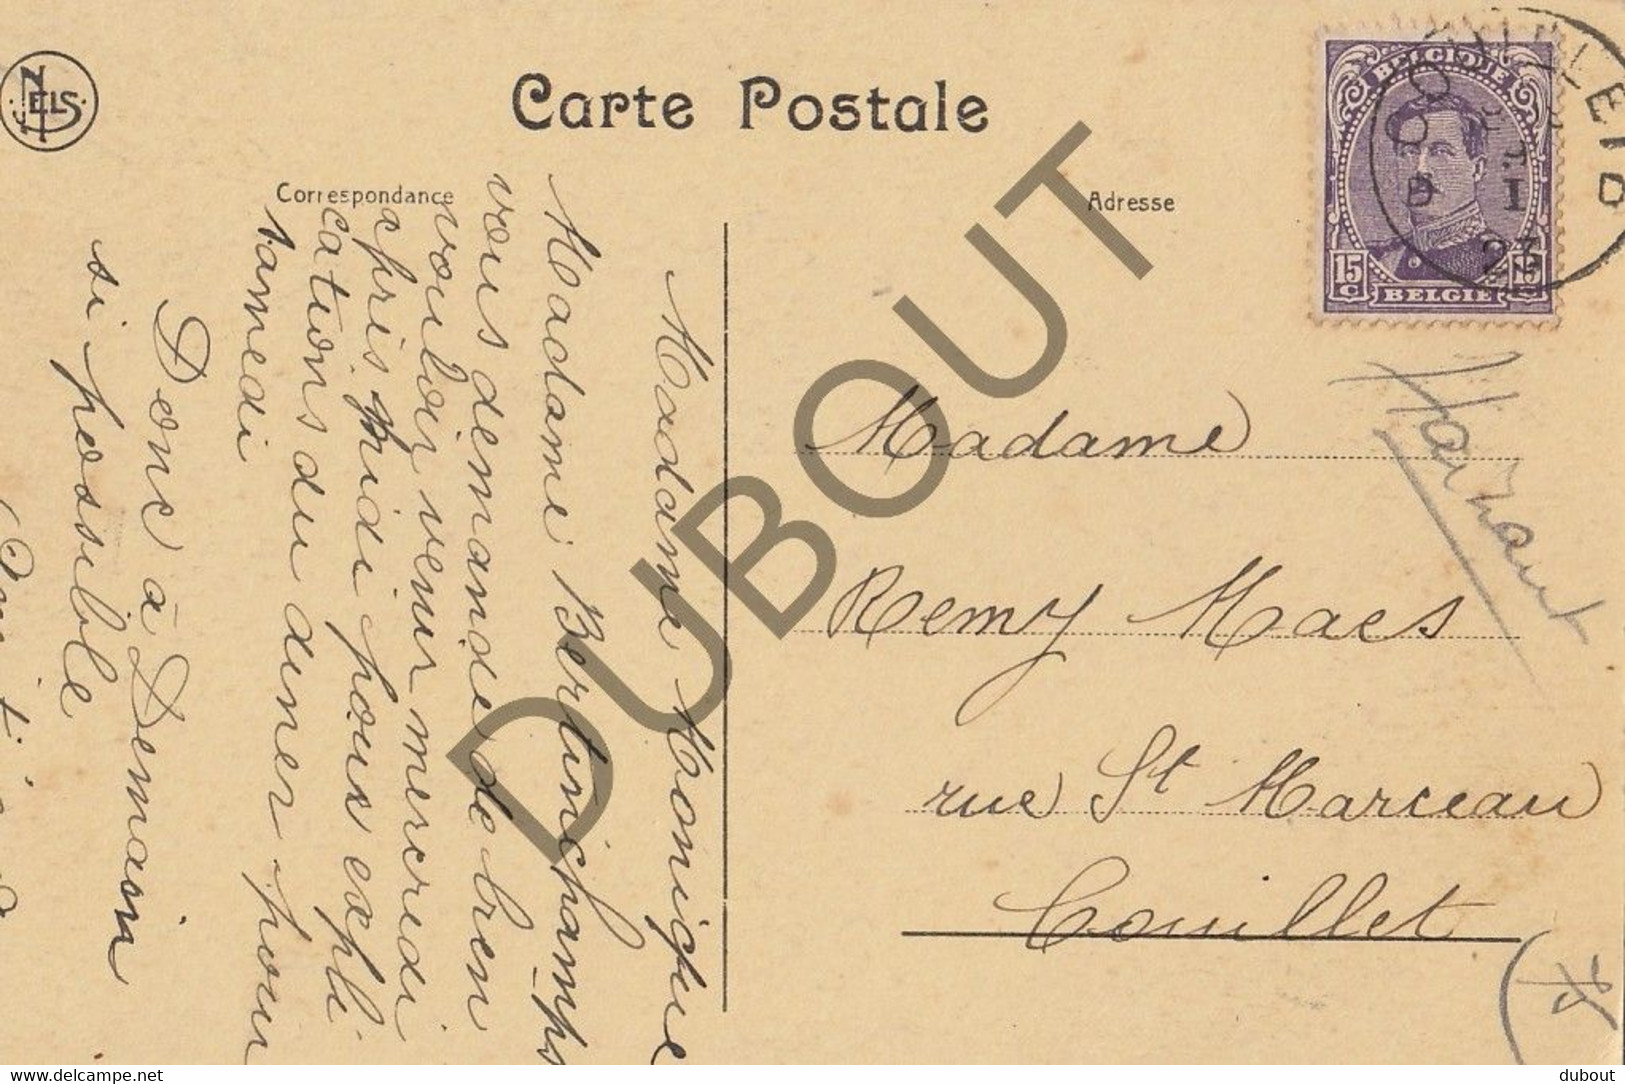 NELS
Carte Postale
Correspondance
Adresse
BELGIQUE
15 C
15 C
BELGIE
COUILLET
I
23
Madame Monique
Madame Bertinchamps
vous demande de bien
vouloir venir mercredi
après midi pour expli
cations du diner pour
samedi
Donc à Demain
si possible
Madame
Remy Maes
rue St Marceau
Couillet
Hainaut
DUBOUT
delcampe.net
dubout